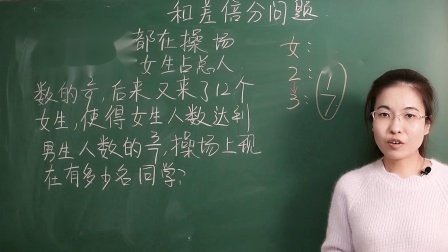 和差倍分问题
都在操场
女生占总人
数的,后来又来了12个
女生,使得女生人数达到
男生人数的3/7,操场上现
在有多少名同学?
女:
2:7
3:7